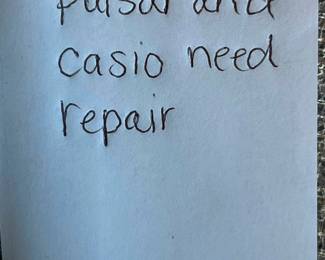 pulsar and
casio need
repair